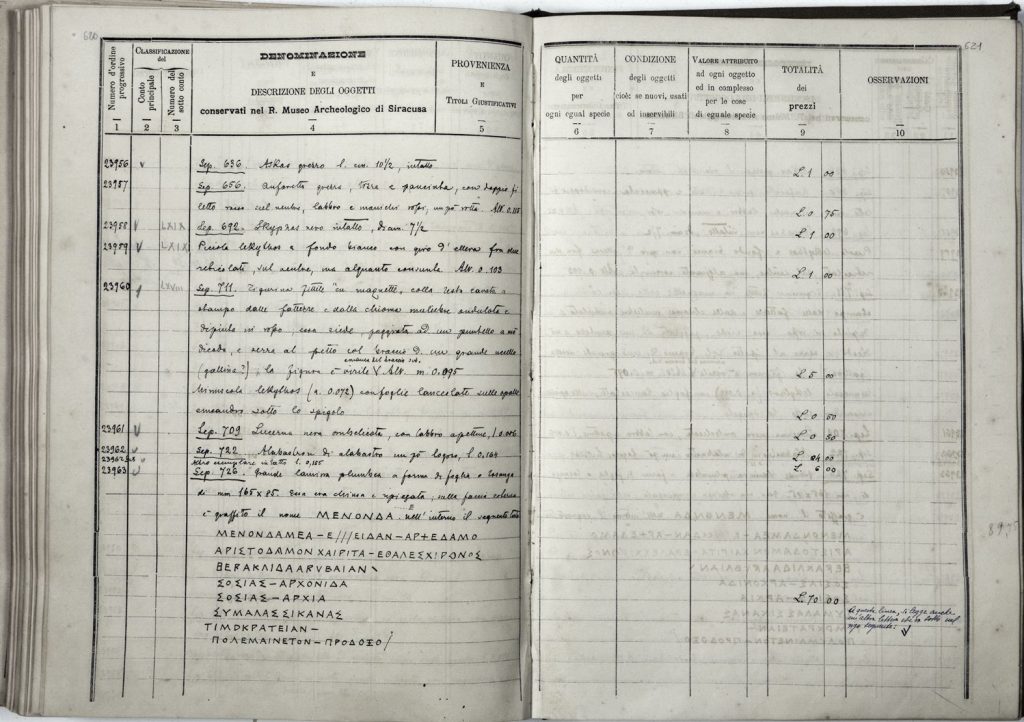 620
Numero d'ordine progressivo
CLASSIFICAZIONE del
Conto principale
Numero del sotto conto
DENOMINAZIONE
E
DESCRIZIONE DEGLI OGGETTI
conservati nel R. Museo Archeologico di Siracusa
PROVENIENZA
E
TITOLI GIUSTIFICATIVI
1 2 3 4 5
23956 Sep. 636. Askos grezzo l. cm. 10 1/2, intatto
23957 Sep. 656. Anforetta grezza, e pancinta, con doppio fi
letto rosso sul ventre, labbro e manichi rossi, un pò rotta. Alt. 0.115
23958 LXIX Sep. 692. Skyphos nero intatto, diam. 7 1/2
23959 LXIX Piccola lekythos a fondo bianco con giro d'ellera fra due
reticolati, sul ventre, ma alquanto consunta Alt. 0.103
23960 LXVIII Sep. 711. Figurina fittile colla testa cavata a
stampo dalle fattezze e dalla chioma muliebre ondulata e
dipinta in rosso, essa siede, poggiata ad un
e serra al petto col braccio D. un grande uccello
manca del braccio sin.
(gallina?); la figura è virile Alt. m 0.095
Minuscola lekythos (a. 0.072) con foglie lanceolate sulle spalle
meandro sotto lo spigolo
23961 Sep. 709 Lucerna nera ombelicata, con labbro l 0.086
23962 Sep. 722 Alabastron di alabastro un pò logoro, l. 0.164
23962 bis altro esemplare intatto l. 0,155
23963 Sep. 726. Grande lamina plumbea a forma di foglia o losanga
di mm 165 x 85. Essa era chiusa e ripiegata, sulla faccia esterna
è graffito il nome ΜΕΝΟΝΔΑ. nell'interno il seguente
ΜΕΝΟΝΔΑΜΕΑ–Ε///ΕΙΔΑΝ–ΑΡ+ΕΔΑΜΟ
ΑΡΙΣΤΟΔΑΜΟΝΧΑΙΡΙΤΑ–ΕΘΑΛΕΣΧΙΡΟΝΟΣ
ΒΕΡΑΚΛΙΔΑΑΡΥΒΑΙΑΝ\
ΣΟΣΙΑΣ–ΑΡΧΟΝΙΔΑ
ΣΟΣΙΑΣ–ΑΡΧΙΑ
ΣΥΜΑΛΑΣΣΙΚΑΝΑΣ
ΤΙΜΟΚΡΑΤΕΙΑΝ–
ΠΟΛΕΜΑΙΝΕΤΟΝ–ΠΡΟΔΟΞΟ/
621
QUANTITÀ
degli oggetti
per
ogni egual specie
CONDIZIONE
degli oggetti
cioè: se nuovi, usati
od inservibili
VALORE ATTRIBUITO
ad ogni oggetto
ed in complesso
per le cose
di eguale specie
TOTALITÀ
dei
prezzi
OSSERVAZIONI
6 7 8 9 10
L. 1 00
L. 0 75
L. 1 00
L. 1 00
L. 5 00
L. 0 50
L. 0 50
L. 24 00
L. 6 00
L. 70 00
A questa linea, si legge anche
un'altra lettera che va sotto nel